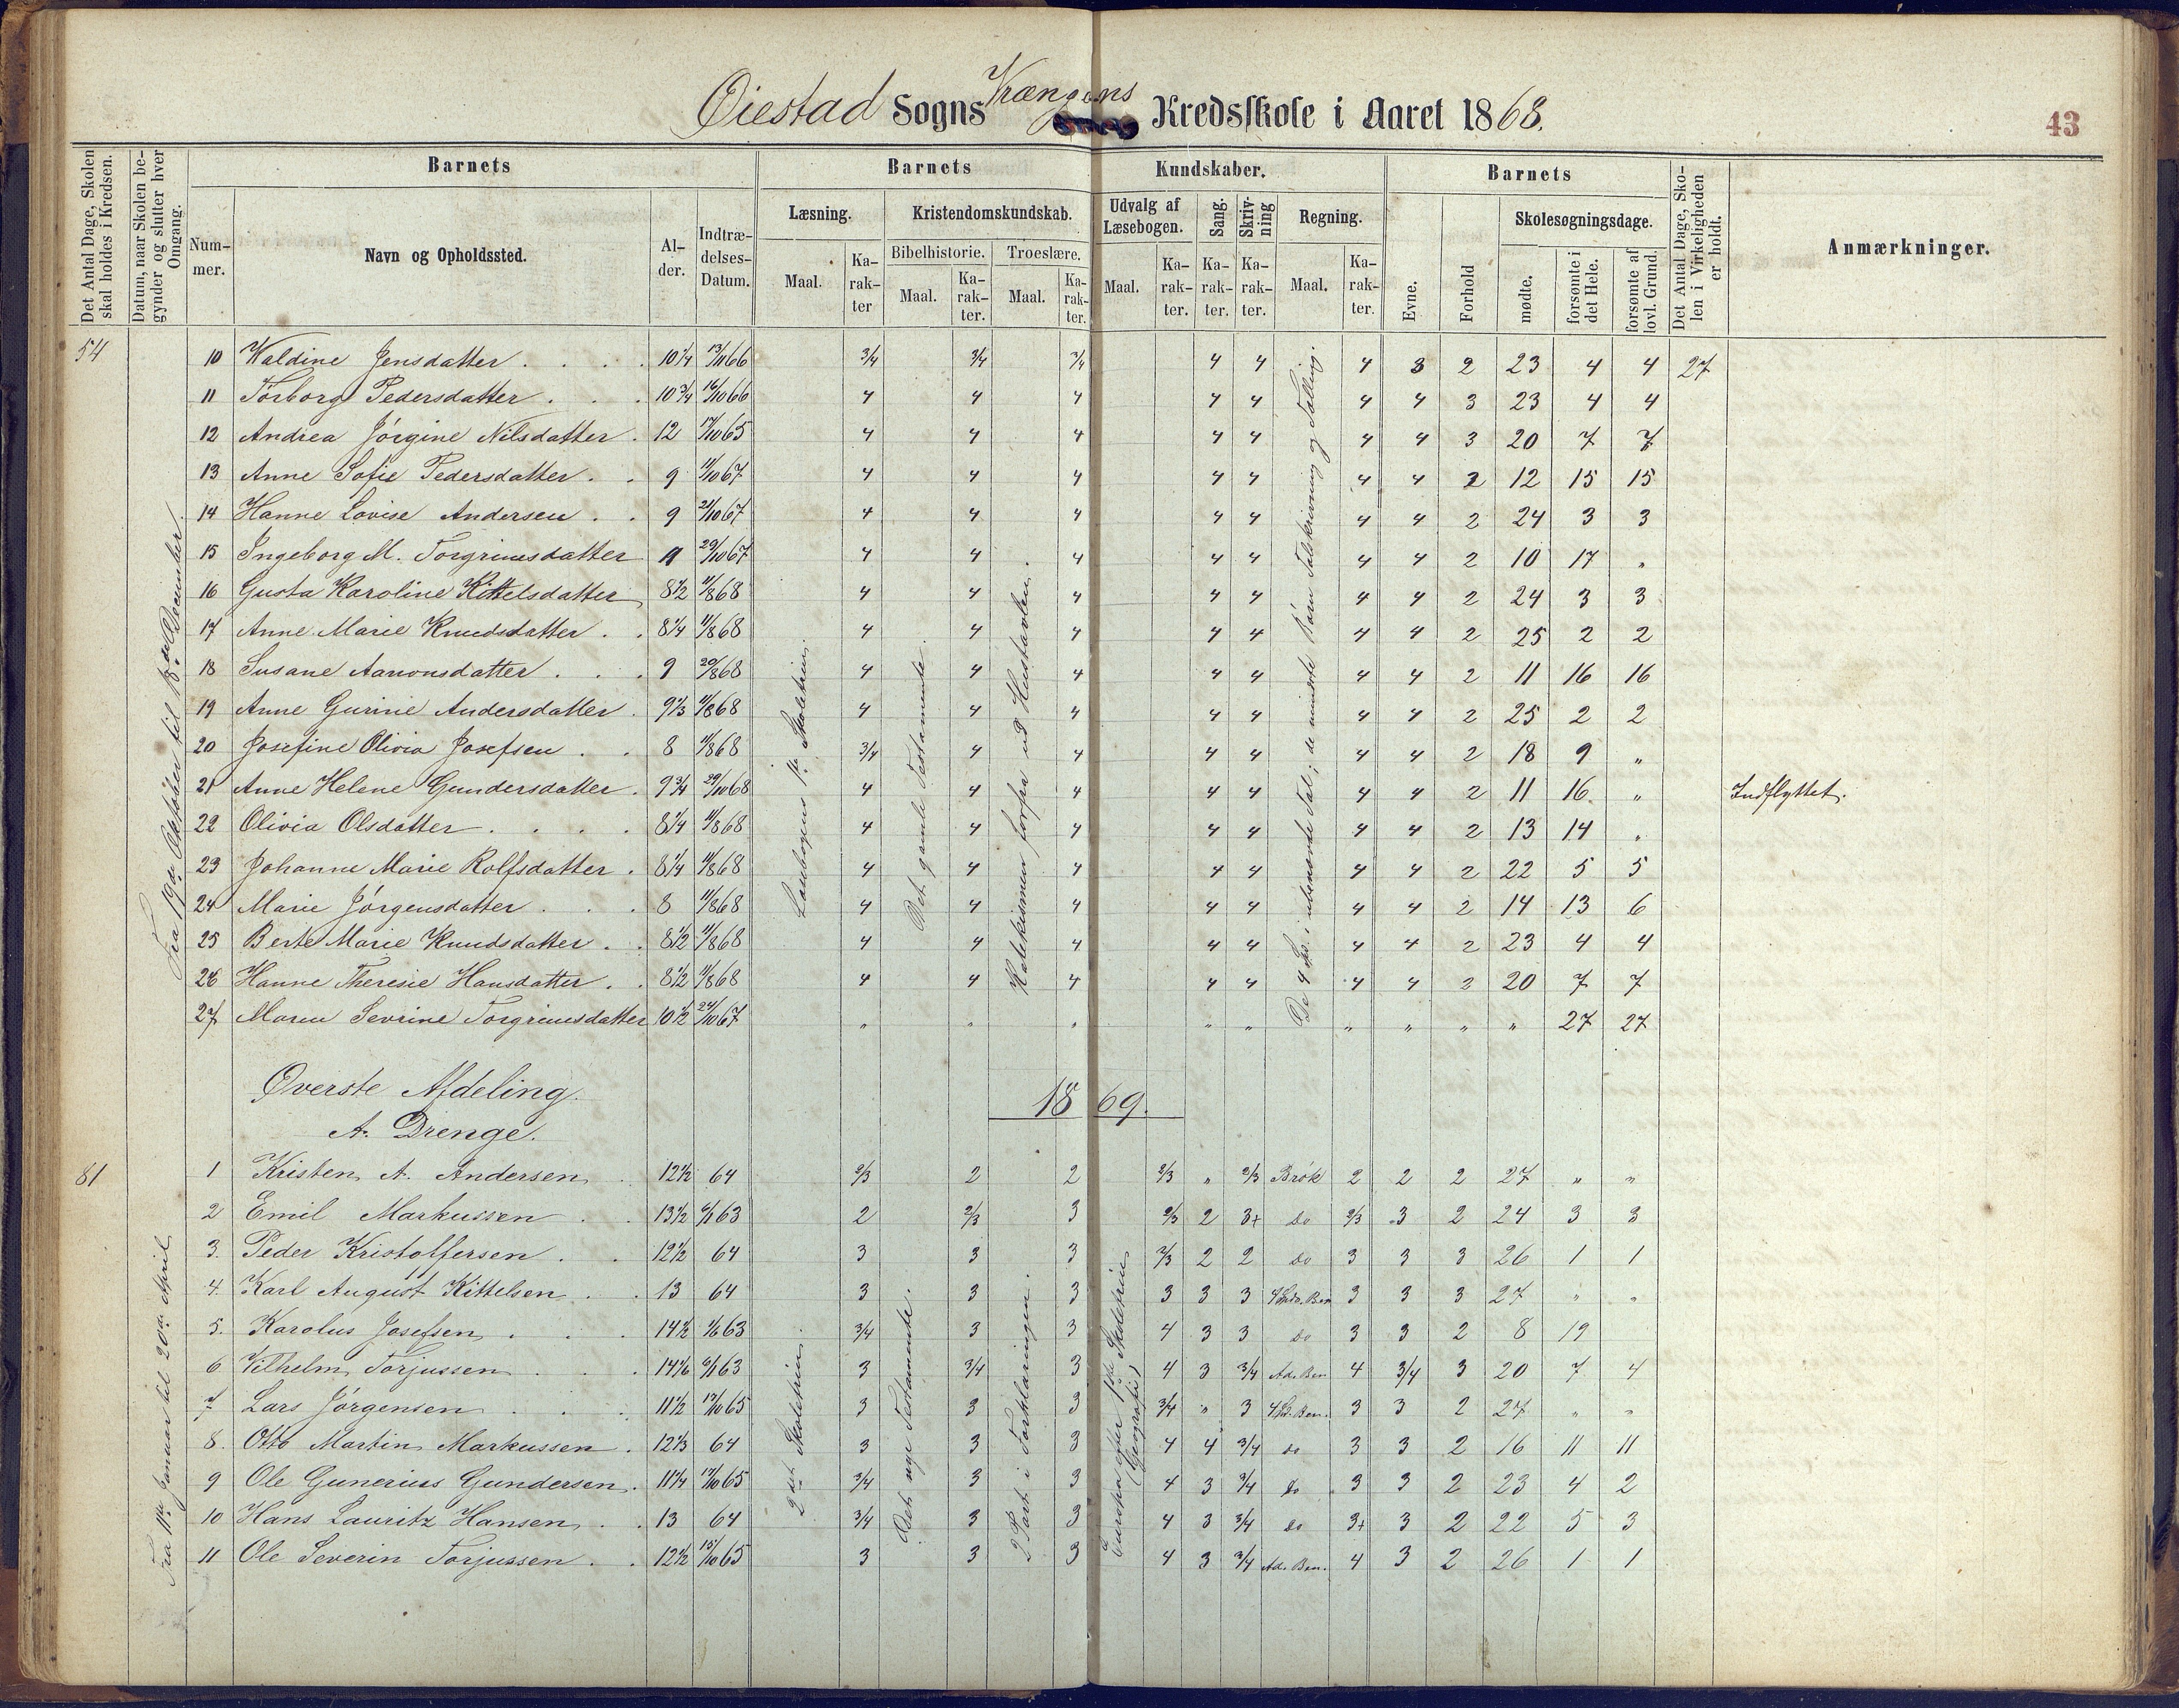 Øiestad Sogns Krængens Kredsskole i Aaret 1868.
43
Det Antal Dage, Skolen skal holdes i Kredsen.
Datum, naar Skolen begynder og slutter hver Omgang.
Barnets
Barnets
Kundskaber.
Barnets
Det Antal Dage, Skolen i Virkeligheden er holdt.
Anmærkninger.
Nummer.
Navn og Opholdssted.
Alder.
Indtrædelses-Datum.
Læsning.
Kristendomskundskab.
Udvalg af Læsebogen.
Sang.
Skrivning
Regning.
Evne.
Forhold
Skolesøgningsdage.
Bibelhistorie.
Troeslære.
Maal.
Karakter
Maal.
Karakter.
Maal.
Karakter.
Maal.
Karakter.
Karakter.
Karakter.
Maal.
Karakter.
mødte.
forsømte i det Hele.
forsømte af lovl. Grund.
54
Fra 19de Oktober til 18de December.
Læsebogens 1ste Skoletrin.
Det gamle Testamente.
Katekismen forfra ud Hustavlen.
De 4 Sp. i ubenævnte Tal; de mindste Børn Talskrivning og Tælling.
10 Valdine Jensdatter 10 1/4 13/11 66 3/4 3/4 3/4 4 4 4 3 2 23 4 4 27
11 Torborg Pedersdatter 10 3/4 16/10 66 4 4 4 4 4 4 4 3 23 4 4
12 Andrea Jørgine Nilsdatter 12 17/10 65 4 4 4 4 4 4 4 3 20 7 7
13 Anne Sofie Pedersdatter 9 11/10 67 4 4 4 4 4 4 4 2 12 15 15
14 Hanne Lovise Andersen 9 21/10 67 4 4 4 4 4 4 4 2 24 3 3
15 Ingeborg M. Torgrimsdatter 11 29/10 67 4 4 4 4 4 4 4 2 10 17 "
16 Gusta Karoline Kittelsdatter 8 1/2 11/8 68 4 4 4 4 4 4 4 2 24 3 3
17 Anne Marie Knudsdatter 8 1/4 11/8 68 4 4 4 4 4 4 4 2 25 2 2
18 Susane Aanonsdatter 9 20/8 68 4 4 4 4 4 4 4 2 11 16 16
19 Anne Gurine Andersdatter 9 1/3 11/8 68 4 4 4 4 4 4 4 2 25 2 2
20 Josefine Olivia Josefsen 8 11/8 68 3/4 4 4 4 4 4 4 2 18 9 "
21 Anne Helene Gundersdatter 9 3/4 29/10 68 4 4 4 4 4 4 4 2 11 16 " Indflyttet.
22 Olivia Olsdatter 8 1/4 11/8 68 4 4 4 4 4 4 4 2 13 14 "
23 Johanne Marie Rolfsdatter 8 1/4 11/8 68 4 4 4 4 4 4 4 2 22 5 5
24 Marie Jørgensdatter 8 11/8 68 4 4 4 4 4 4 4 2 14 13 6
25 Berte Marie Knudsdatter 8 1/2 11/8 68 4 4 4 4 4 4 4 2 23 4 4
26 Hanne Theresie Hansdatter 8 1/2 11/8 68 4 4 4 4 4 4 4 2 20 7 7
27 Maren Sevrine Torgrimsdatter 10 1/2 24/10 67 " " " " " " " " " 27 27
Øverste Afdeling.
1869.
A. Drenge.
81
Fra 11te Januar til 20de April
2det Skoletrin.
Det nye Testamente.
2 Part i Forklaringen.
Europa efter 1ste Skoletrin (Geografi)
1 Kristen A. Andersen 12 1/2 64 2/3 2 2 2/3 " 2/3 Brøk 2 2 2 27 " "
2 Emil Markussen 13 1/2 6/1 63 2 2/3 3 2/3 2 3+ do 2/3 3 2 24 3 3
3. Peder Kristoffersen 12 1/2 64 3 3 3 2/3 2 2 do 3 3 3 26 1 1
4. Karl August Kittelsen 13 64 3 3 3 3 3 3 3 3 3 27 " "
5. Karolus Josefsen 14 1/2 1/6 63 3/4 3 3 4 3 3 do 3 3 2 8 19
6 Vilhelm Torjussen 14 1/6 6/1 63 3 3/4 3 4 3 3/4 Ad. Ben 4 3/4 3 20 7 4
7 Lars Jørgensen 11 1/2 17/10 65 3 3 3 3/4 " 3 4 Sp. Ben. 3 3 2 27 " "
8. Otto Martin Markussen 12 1/3 64 3 3 3 4 4 3/4 do 3 3 2 16 11 11
9 Ole Gunerius Gundersen 11 1/4 17/10 65 3/4 3 3 4 3 3/4 do 3 3 2 23 4 2
10 Hans Lauritz Hansen 13 64 3/4 3 3 4 3 3/4 do 3+ 3 2 22 5 3
11 Ole Severin Torjussen 12 1/2 15/10 65 3 3 3 4 3 3/4 Ad. Ben. 4 3 2 26 1 1